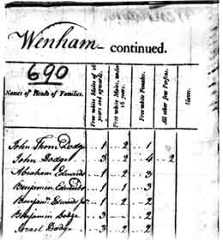 Wenham—continued.
690
Names of Heads of Families.
Free white Males of 16 years and upwards.
Free white Males, under 16 years.
Free white Females.
All other free Persons.
Slaves.
John Thom Dodge 1 2 1
John Dodge 3 2 4 2
Abraham Edwards 1 2 3
Benjamin Edwards 1 1 3
Benjam Edwards Jr 1 2 2
Benjamin Dodge 3 2
Israel Dodge 3 2